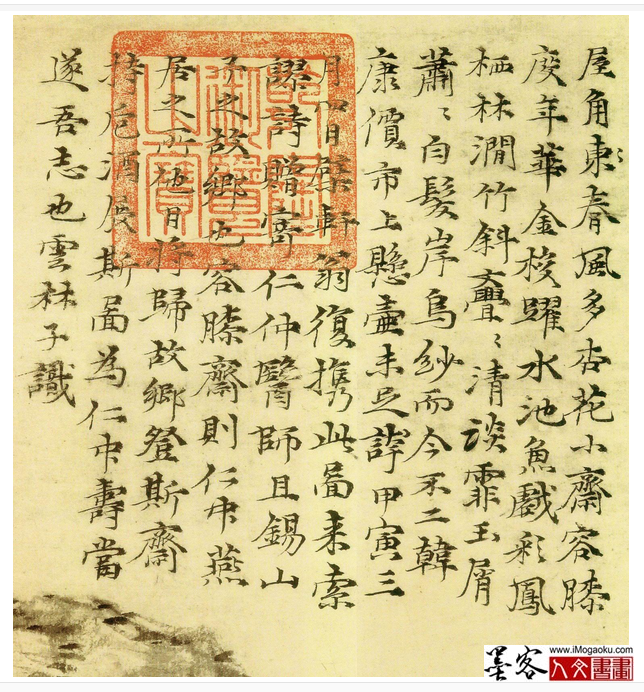 屋角東春風多杏花小齋容膝
度年華金梭躍水池魚戲彩鳳
栖林澗竹斜亹〻清談霏玉屑
蕭〻白髮岸烏紗而今不二韓
康價市上懸壺未足誇甲寅三
月四日檗軒翁復攜此啚来索
謬詩贈寄仁仲醫師且錫山
予之故鄉也容膝齋則仁中燕
居之所他日將歸故鄉登斯齋
持卮酒展斯啚為仁中壽當
遂吾志也雲林子識
乾隆
御覽
之寶
墨客
www.iMogaoku.com
人文書畫